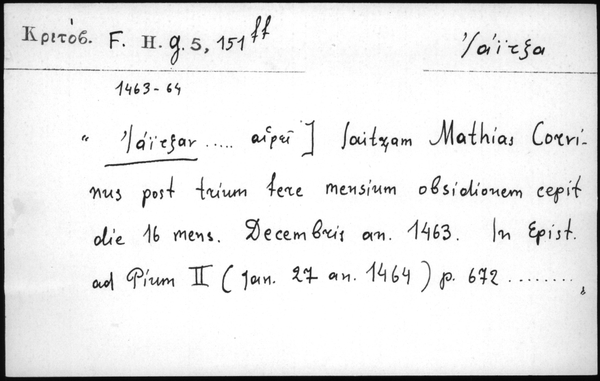 Κριτόβ. F. H. g. 5, 151 ff
Ἰάϊτξα
1463-64
" Ἰάϊτξαν ..... αἱρεῖ ] Iaitzam Mathias Corvi-
nus post trium fere mensium obsidionem cepit
die 16 mens. Decembris an. 1463. In Epist.
ad Pium II ( Jan. 27 an. 1464 ) p. 672 ........ "